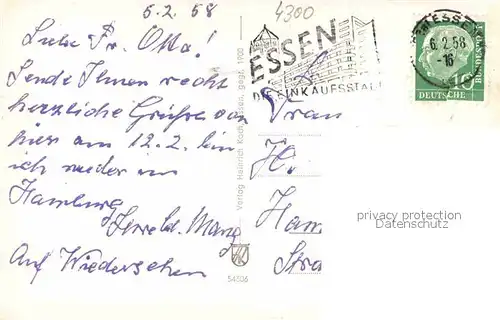 5.2.58
Liebe Fr. Otta!
Sende Ihnen recht
herzliche Grüße von
hier am 12.2. bin
ich wieder in
Hamburg
Auf Wiedersehen
4300
ESSEN
DIE EINKAUFSSTADT
ESSEN
6.2.58
-16
10
DEUTSCHE
BUNDESPOST
Verlag Heinrich Koch, Essen, gegr. 1900
54506
Frau
H.
Ham
Stra
privacy protection
Datenschutz